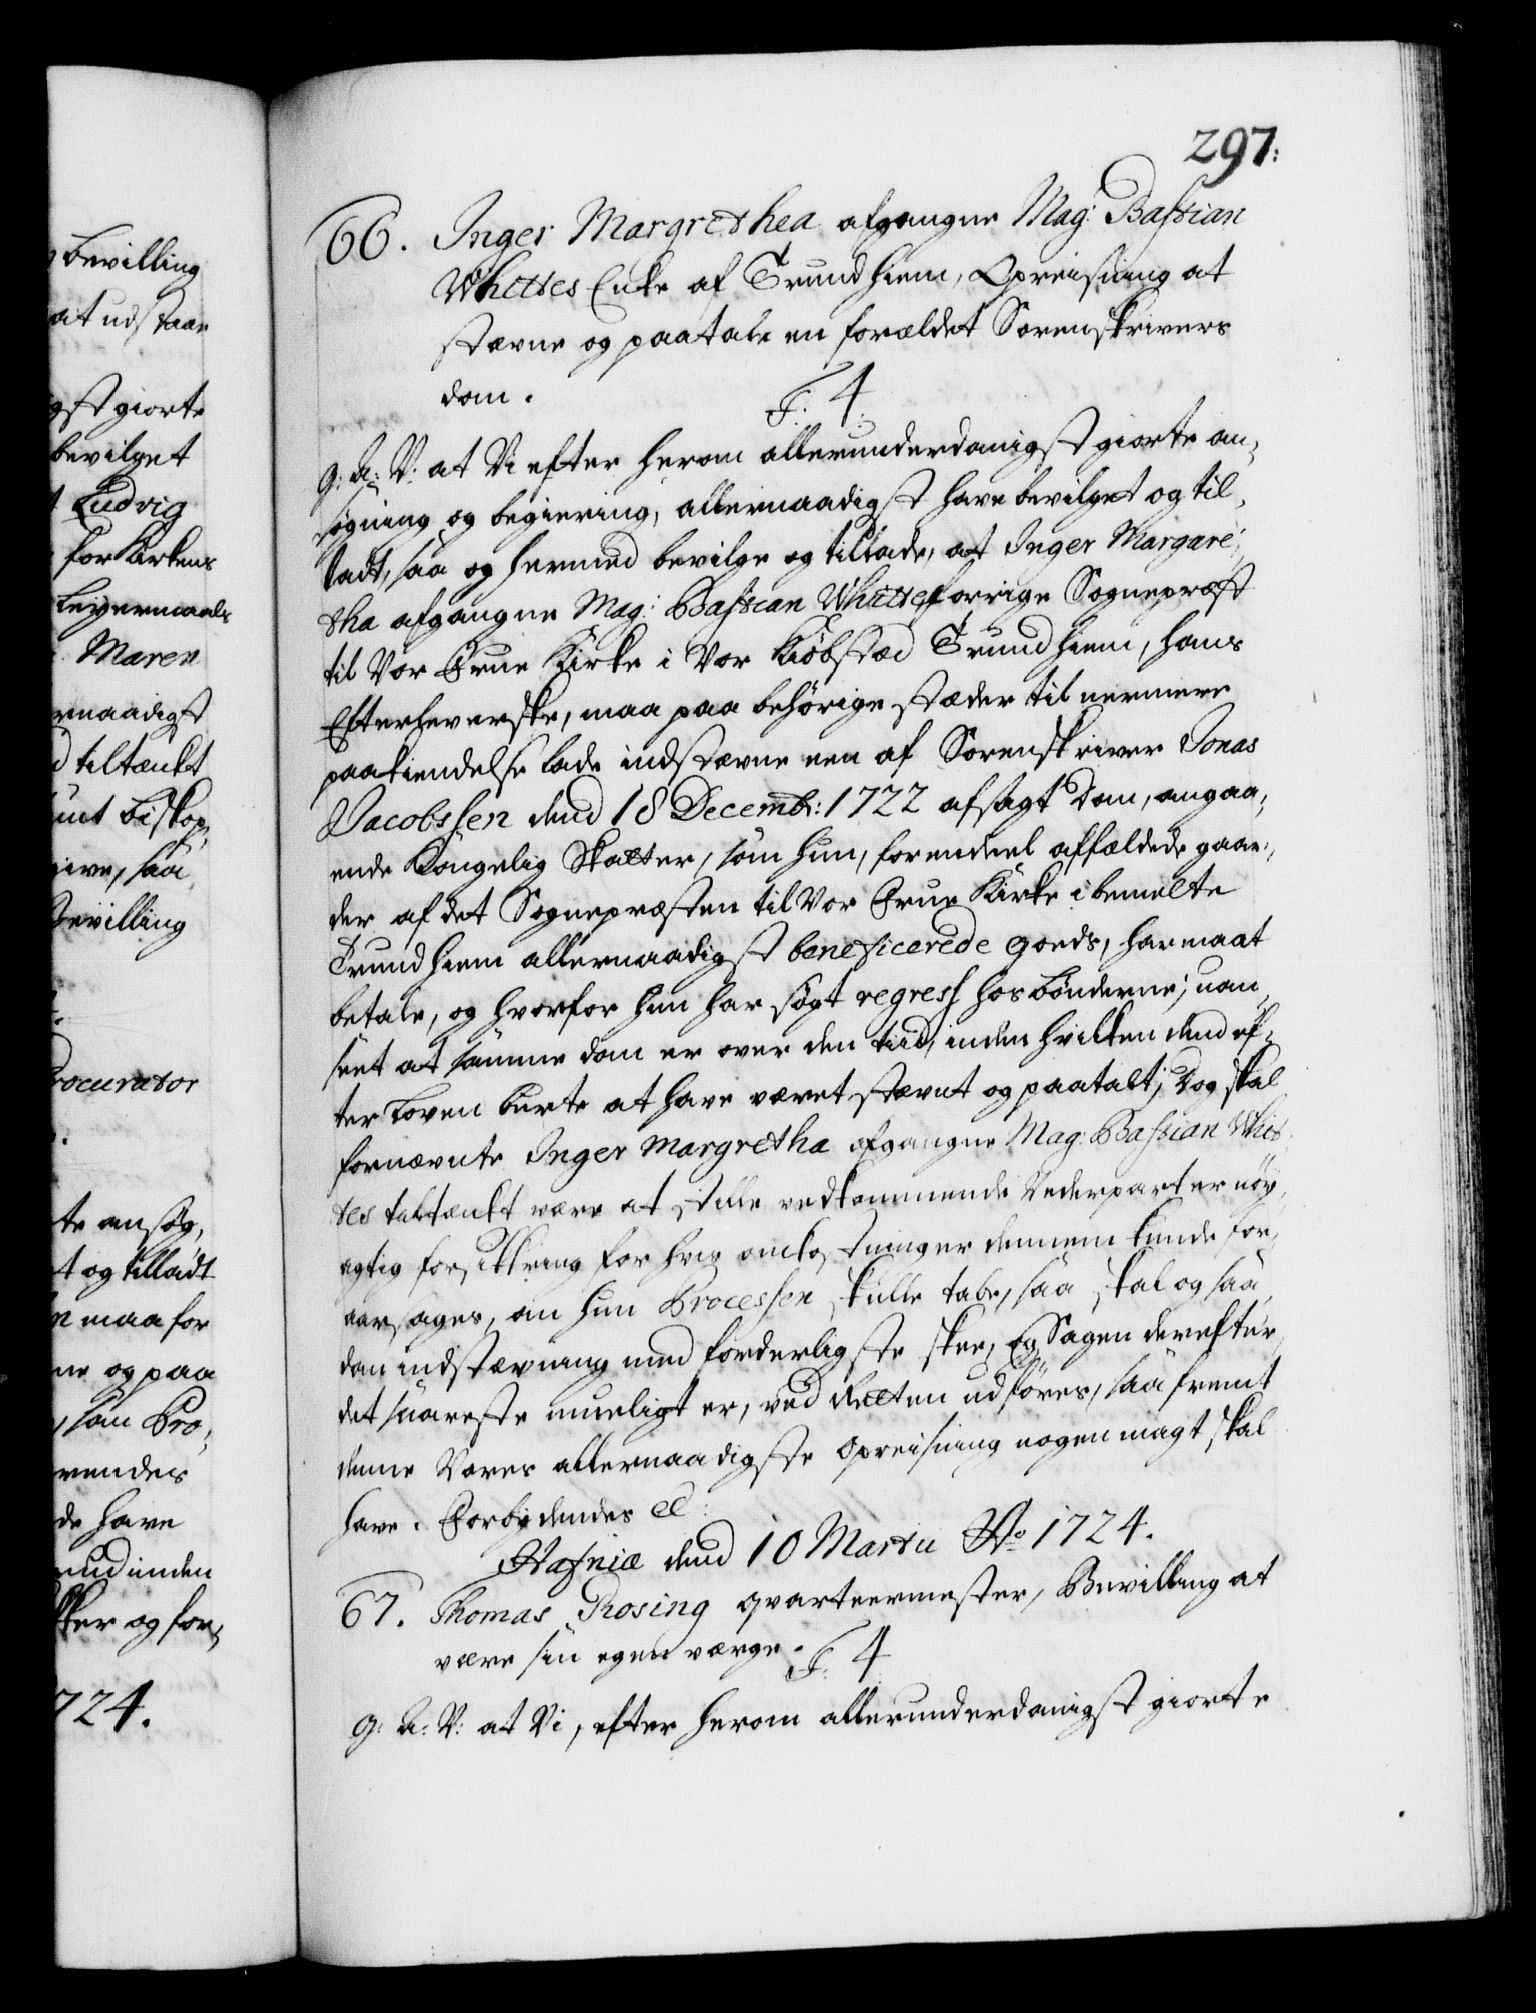 bevilling
at udstaae
gst giorte
bevilget
Ludvig
for Kirkens
Leyermaals
Maren
rnaadigst
d tiltænkt
Biskop,
give, saa
Bevilling
Procurator
te ansøg,
t og tilladt
n maa for
ne og paa
, som Pro,
rendes
de have
rud inden
sker og for,
724.
297:
66. Inger Margrethea afgangne Mag: Bastian
Whittes Enke af Trundhiem, Opreisning at
stævne og paatale en forældet Sorenskrivers
dom. F. 4.
G: A: V: at Vi efter herom allerunderdanigst giorte an,
søgning og begiering, allernaadigst have bevilget og til,
ladt, saa og hermed bevilge og tillade, at Inger Margare,
tha afgangne Mag: Bastian Whittes forrige Sognepræst
til Vor Frue Kirke i Vor Kiøbstæd Trundhiem, hans
Efterleverske, maa paa behørige stæder til nermere
paakiendelse lade indstævne een af Sorenskriver Jonas
Jacobssen dend 18 Decembr: 1722 afsagt Dom, angaa,
ende Kongelig Skatter, som hun, for endeel affældede gaar,
der af det Sognepræsten til Vor Frue Kirke i bemelte
Trundhiem allernaadigst beneficerede goeds, har maat
betale, og hvorfor hun har søgt regress hos bønderne; uan,
seet at samme dom er over den tiid, inden hvilken dend ef,
ter Loven burte at have været stævnt og paatalt; Dog skal
fornævnte Inger Margretha afgangne Mag: Bastian Whit,
tes tiltænkt være at stille vedkommende Vederparter nøy,
agtig forsikkring for hvis omkostninger dennem kunde for,
aarsages, om hun Processen skulle tabe, saa skal og saa,
dan indstævning med forderligste skee, og Sagen derefter,
det snareste mueligt er, ved Retten udføres, saafremt
denne Vores allernaadigste opreisning nogen magt skal
have. Forbydendes etc:
Hafniæ dend 10 Martii Ao 1724.
67. Thomas Rosing qvarteermester, Bevilling at
være sin egen værge. F. 4
G: A: V: at Vi, efter herom allerunderdanigst giorte